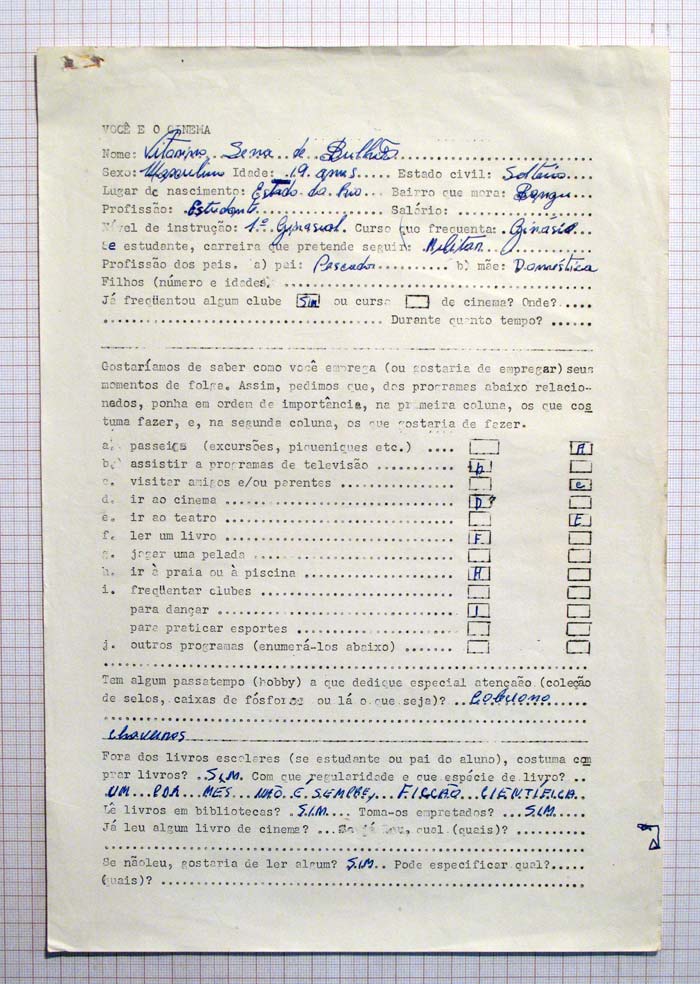 VOCÊ E O CINEMA
Nome: Sena de
Sexo: Masculino Idade: 19 anos Estado civil: Solteiro
Lugar de nascimento: Estado do Rio Bairro que mora: Bangu
Profissão: Estudante Salário:
Nível de instrução: 1º Ginasial. Curso que frequenta: Ginásio
Se estudante, carreira que pretende seguir: Militar
Profissão dos pais. a) pai: Pescador b) mãe: Doméstica
Filhos (número e idades.
Já freqüentou algum clube Sim ou curso de cinema? Onde?
Durante quanto tempo?
Gostaríamos de saber como você emprega (ou gostaria de empregar) seus
momentos de folga. Assim, pedimos que, dos programas abaixo relacio-
nados, ponha em ordem de importância, na primeira coluna, os que cos
tuma fazer, e, na segunda coluna, os que gostaria de fazer.
a) passeios (excursões, piqueniques etc.) .... A
b) assistir a programas de televisão b
c. visitar amigos e/ou parentes c
d. ir ao cinema D
e. ir ao teatro E
f. ler um livro F
g. jogar uma pelada
h. ir à praia ou à piscina H
i. freqüentar clubes
para dançar I
para praticar esportes
j. outros programas (enumerá-los abaixo)
Tem algum passatempo (hobby) a que dedique especial atençaão (coleção
de selos, caixas de fósforos ou lá o que seja)?
Fora dos livros escolares (se estudante ou pai do aluno), costuma com
prar livros? SIM. Com que regularidade e que espécie de livro?
UM POR MES NÃO E SEMPRE, FICCÃO CIENTIFICA
Lê livros em bibliotecas? SIM Toma-os empretados? SIM
Já leu algum livro de cinema? Se já leu, qual (quais)?
Se nãoleu, gostaria de ler algum? SIM Pode especificar qual?
(quais)?